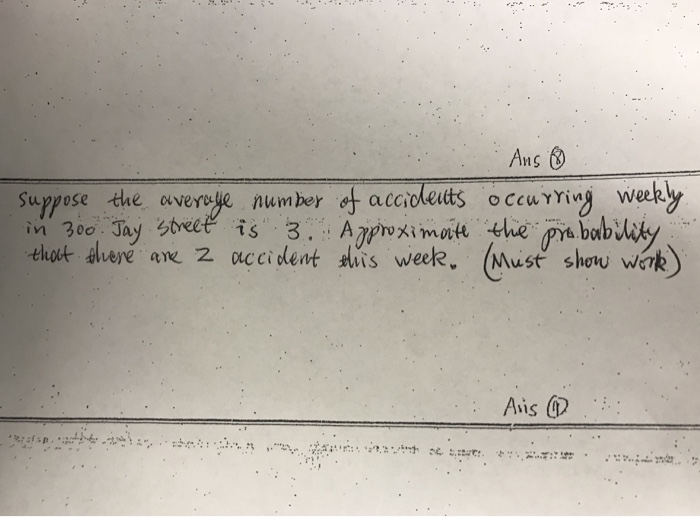 Ans ⑧
Suppose the average number of accidents occurring weekly
in 300 Jay Street is 3. Approximate the probability
that there are 2 accident this week. (Must show work)
Ans